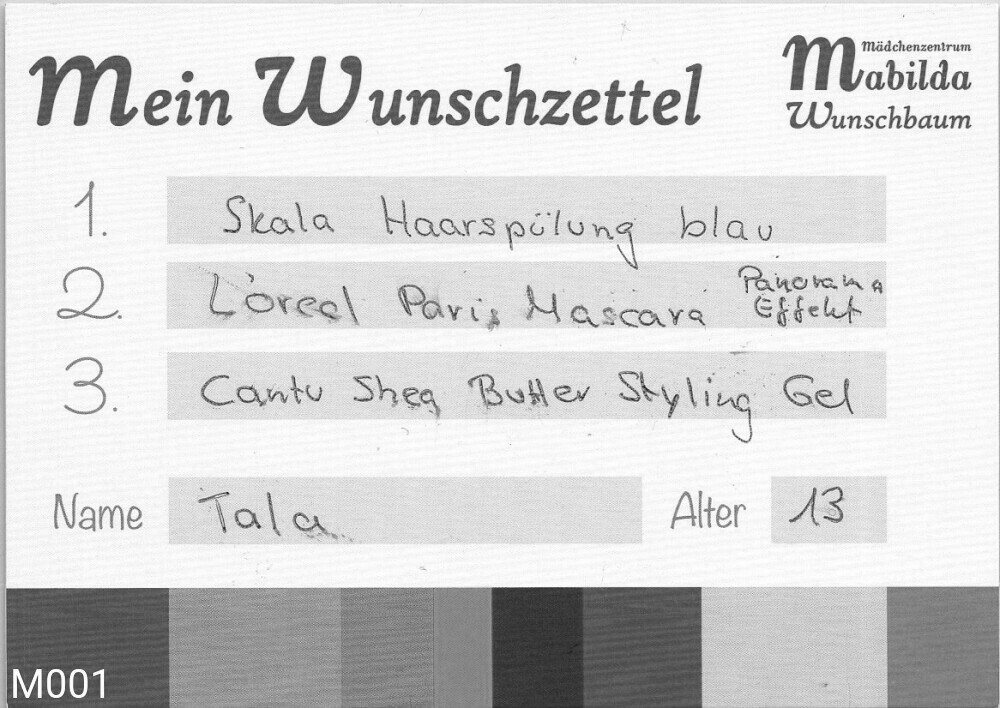 Mein Wunschzettel
Mädchenzentrum
Mabilda
Wunschbaum
1. Skala Haarspülung blau
2. L'óreal Paris Mascara Panorama
Effekt
3. Cantu Shea Butter Styling Gel
Name Tala Alter 13
M001